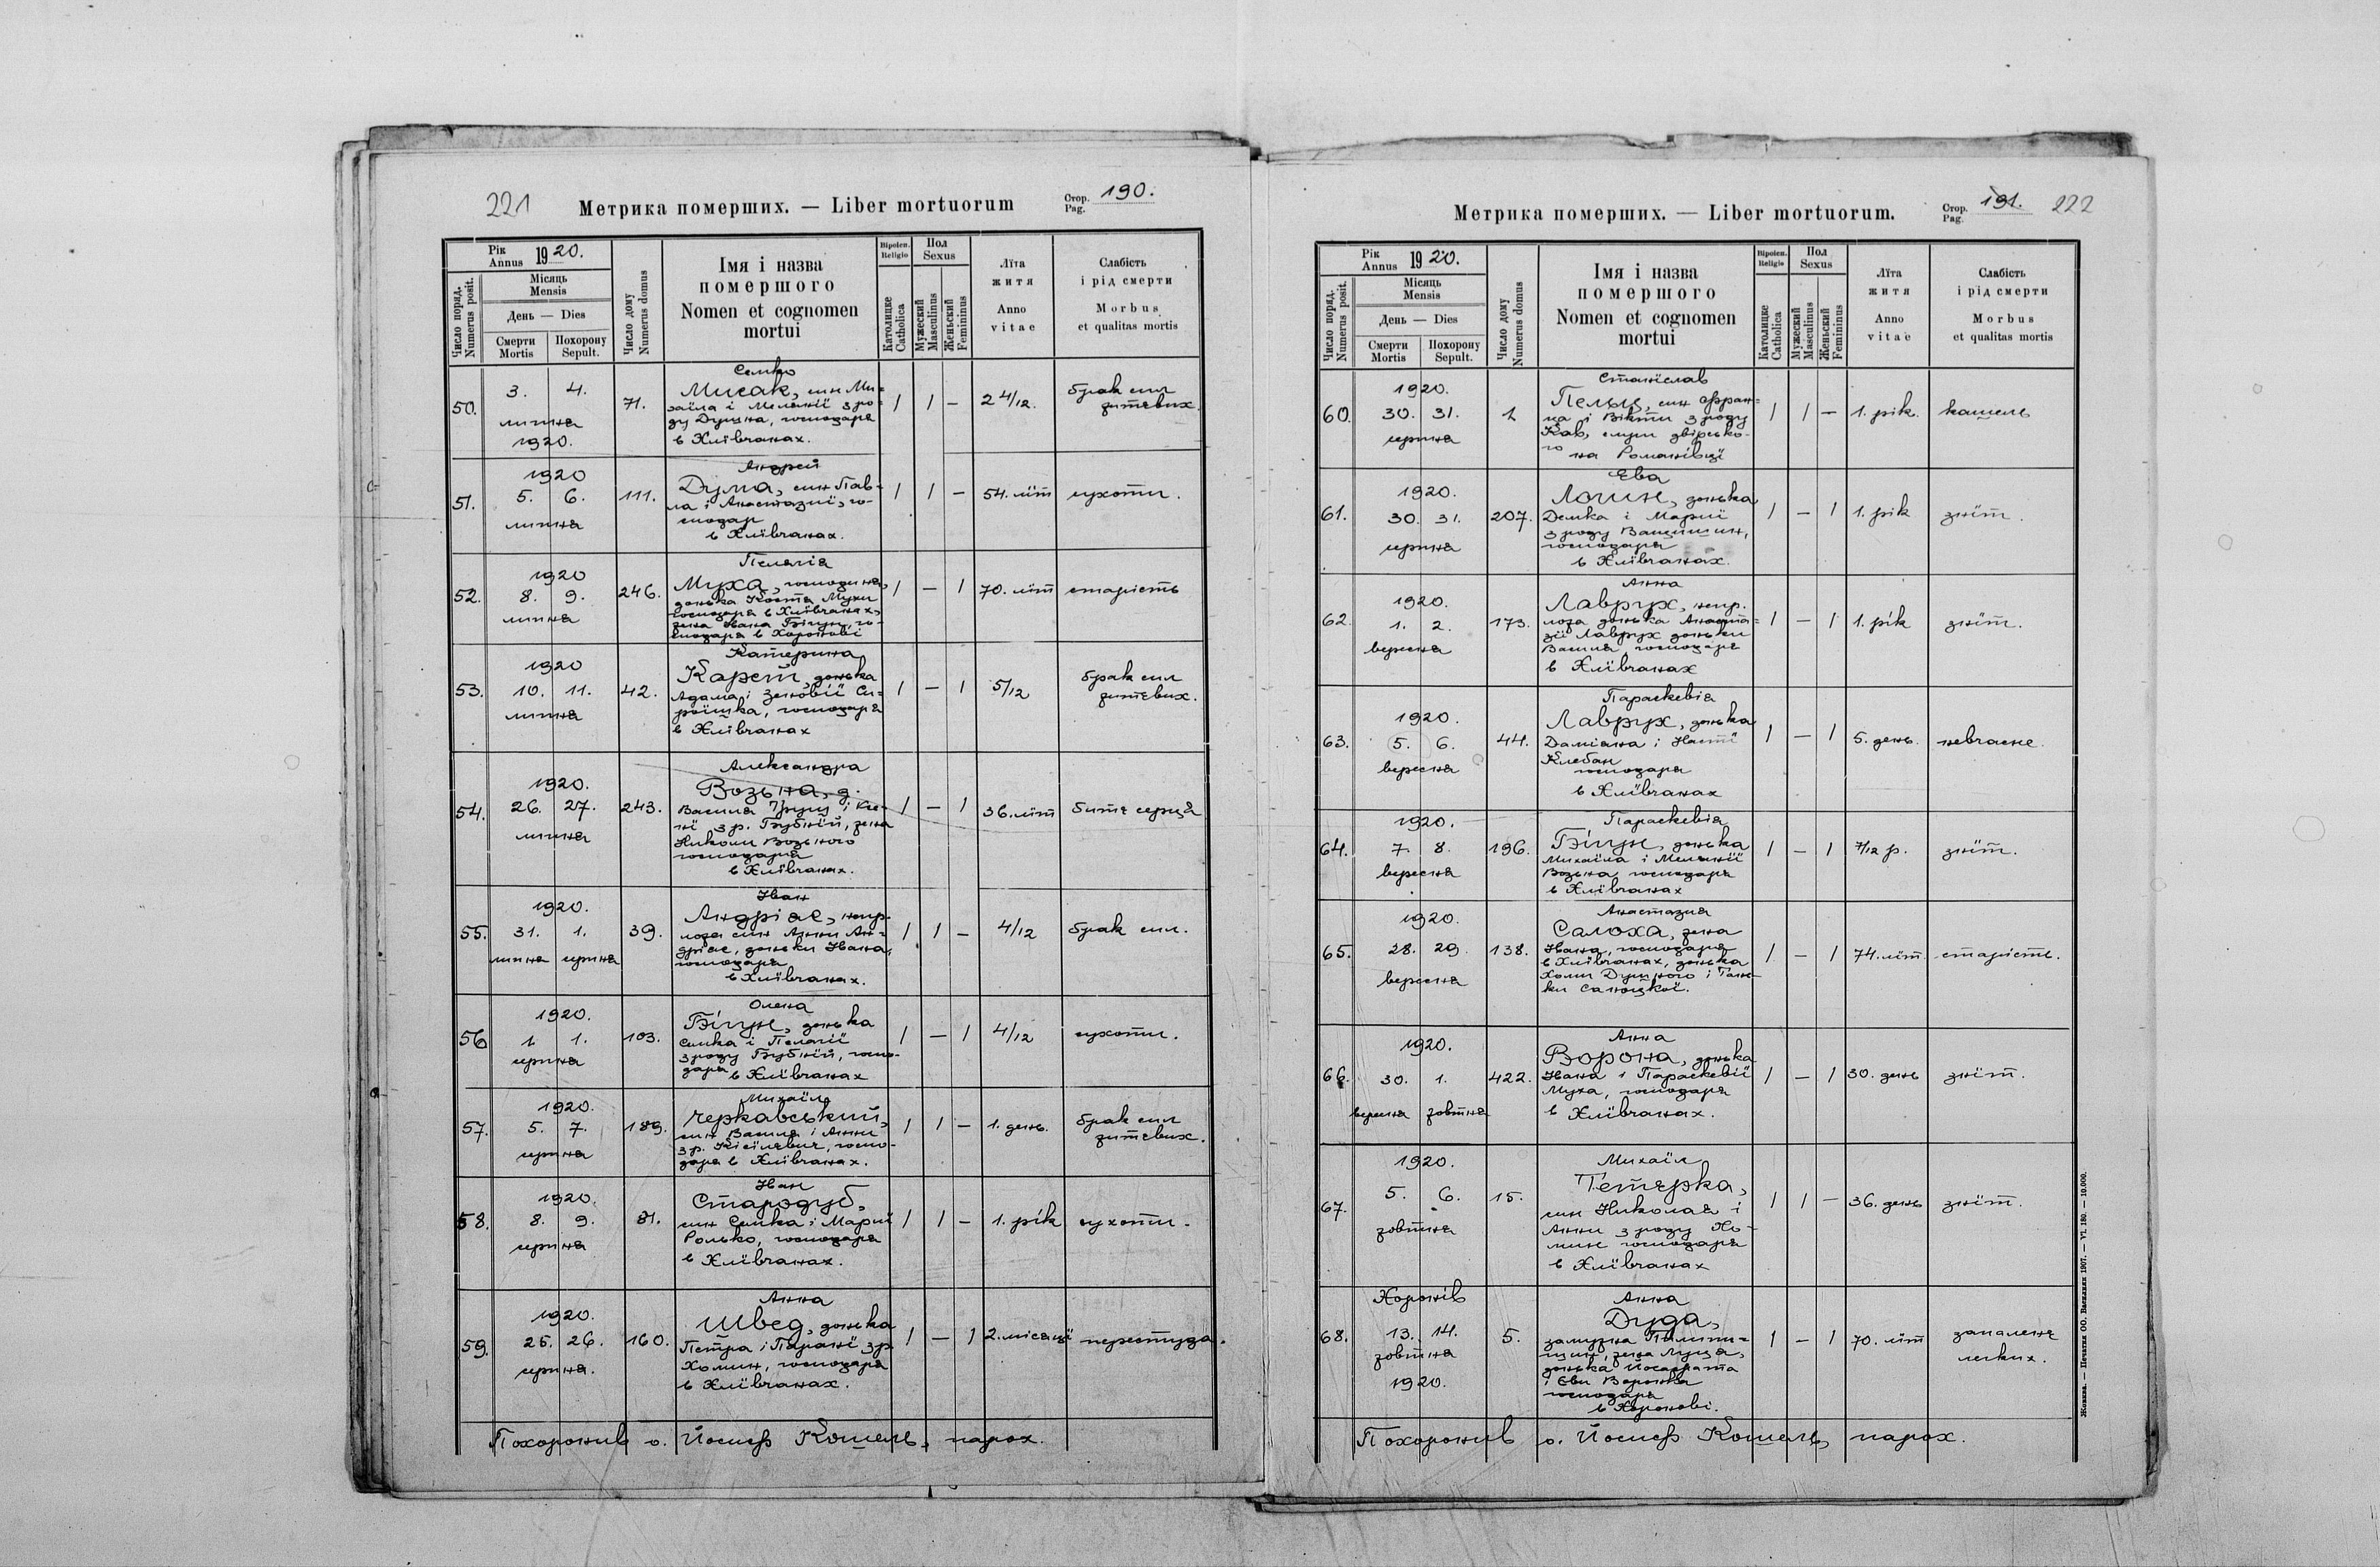 221
Метрика помершик. — Liber mortuorum
Стор. Pag. 190.
Рік Annus 1920.
Місяць Mensis
День — Dies
Смерти Mortis
Похорону Sepult.
Число поряд. Numerus posit.
Число дому Numerus domus
Імя і назва помершого
Nomen et cognomen mortui
Віроісп. Religio
Католицке Catholica
Пол Sexus
Мужеский Masculinus
Женьский Femininus
Лїта житя
Anno vitae
Слабість і рід смерти
Morbus et qualitas mortis
50. 3. 4. липня 1920. 71.
Семко
Мисак, син Ми-
хаіла і Меланії з ро-
ду Дуцка, господаря
в Хлївчанах.
1 1 — 2 4/12. брак сил житєвих
51. 1920 5. 6. липня 111.
Андрей
Дума, син Пав-
ла і Анастазиї, го-
сподар
в Хлївчанах.
1 1 — 54. лїт сухоти.
52. 1920 8. 9. липня 246.
Пелагія
Муха, господиня,
донька Костя Мухи
господаря в Хлївчанах,
жена Івана Бігун, го-
сподаря в Хоронові
1 — 1 70. лїт старість
53. 1920 10. 11. липня 42.
Катерина
Карет, донька
Адама і Зеновії Си-
роїшка, господаря
в Хлївчанах
1 — 1 5/12 брак сил житєвих.
54. 1920. 26. 27. липня 243.
Александра
Возьна, д.
Василя Груц і Ксе-
нї з р. Бубнїй, жена
Николи Возьного
господаря
в Хлївчанах.
1 — 1 36. лїт битє серця
55. 1920. 31. 1. липня серпня 39.
Іван
Андріяс, непр.
ложа син Анни Ан-
дріяс, доньки Івана,
господаря
в Хлївчанах.
1 1 — 4/12 брак сил.
56 1920. 1 1. серпня 103.
Олена
Бігун, донька
Семка і Пелагії
з роду Бубнїй, госпо-
даря в Хлївчанах
1 — 1 4/12 сухоти.
57. 1920. 5. 7. серпня 189.
Михаіл
Черкавський,
син Василя і Анни
з р. Кісїлевич, госпо-
даря в Хлївчанах.
1 1 — 1. день. брак сил житєвих.
58. 1920. 8. 9. серпня 81.
Іван
Стародуб,
син Семка і Марії
Ролько, господаря
в Хлївчанах.
1 1 — 1. рік сухоти.
59. 1920. 25. 26. серпня. 160.
Анна
Швед, донька
Петра і Параньї з р.
Холин, господаря
в Хлївчанах.
1 — 1 2. місяцї перестуда.
Похоронив о. Йосиф Кошель, парох.
Метрика помершик. — Liber mortuorum.
Стор. Pag. 191. 222
Рік Annus 1920.
Місяць Mensis
День — Dies
Смерти Mortis
Похорону Sepult.
Число поряд. Numerus posit.
Число дому Numerus domus
Імя і назва помершого
Nomen et cognomen mortui
Віроісп. Religio
Католицке Catholica
Пол Sexus
Мужеский Masculinus
Женьский Femininus
Лїта житя
Anno vitae
Слабість і рід смерти
Morbus et qualitas mortis
60. 1920. 30. 31. серпня 1
Станїслав
Пельц, син Фран-
ца і Вікти з роду
Кав, слуги двірсько-
го на Романівцї
1 1 — 1. рік. кашель
61. 1920. 30. 31. серпня 207.
Ева
Логин, донька
Демка і Марії
з роду Ващишин,
господаря
в Хлївчанах.
1 — 1 1. рік знїт.
62. 1920. 1. 2. вересня 173.
Анна
Лаврух, непр.
ложа донька Анаста-
зії Лаврух доньки
Василя господаря
в Хлївчанах
1 — 1 1. рік знїт.
63. 1920. 5. 6. вересня 44.
Параскевія
Лаврух, донька
Даміяна і Настї
Клебан
господаря
в Хлївчанах
1 — 1 5. день. невчасне.
64. 1920. 7. 8. вересня 196.
Параскевія
Бігун, донька
Михаіла і Меланїї
Возьна, господаря
в Хлївчанах
1 — 1 7/12 р. знїт.
65. 1920. 28. 29. вересня 138.
Анастазия
Салоха, жена
Івана, господаря
в Хлївчанах, донька
Хоми Дуцкого і Гань-
ки Саноцкої.
1 — 1 74. лїт. старість.
66. 1920. 30. 1. вересня жовтня 422.
Анна
Ворона, донька
Івана і Параскевії
Муха, господаря
в Хлївчанах.
1 — 1 30. день знїт.
67. 1920. 5. 6. жовтня 15.
Михаіл
Тетерка,
син Николая і
Анни з роду Хо-
лин господаря
в Хлївчанах
1 1 — 36. день знїт.
68. Хоронів 13. 14. жовтня 1920. 5.
Анна
Дуда,
замужна Пилипи-
шин, жена Луця,
донька Йосафата
і Еви Воронка
господаря
в Хоронові.
1 — 1 70. лїт запаленє легких.
Похоронив о. Йосиф Кошель, парох.
Жовква. — Печатня ОО. Василиян 1907. — VI. 180. — 10.000.